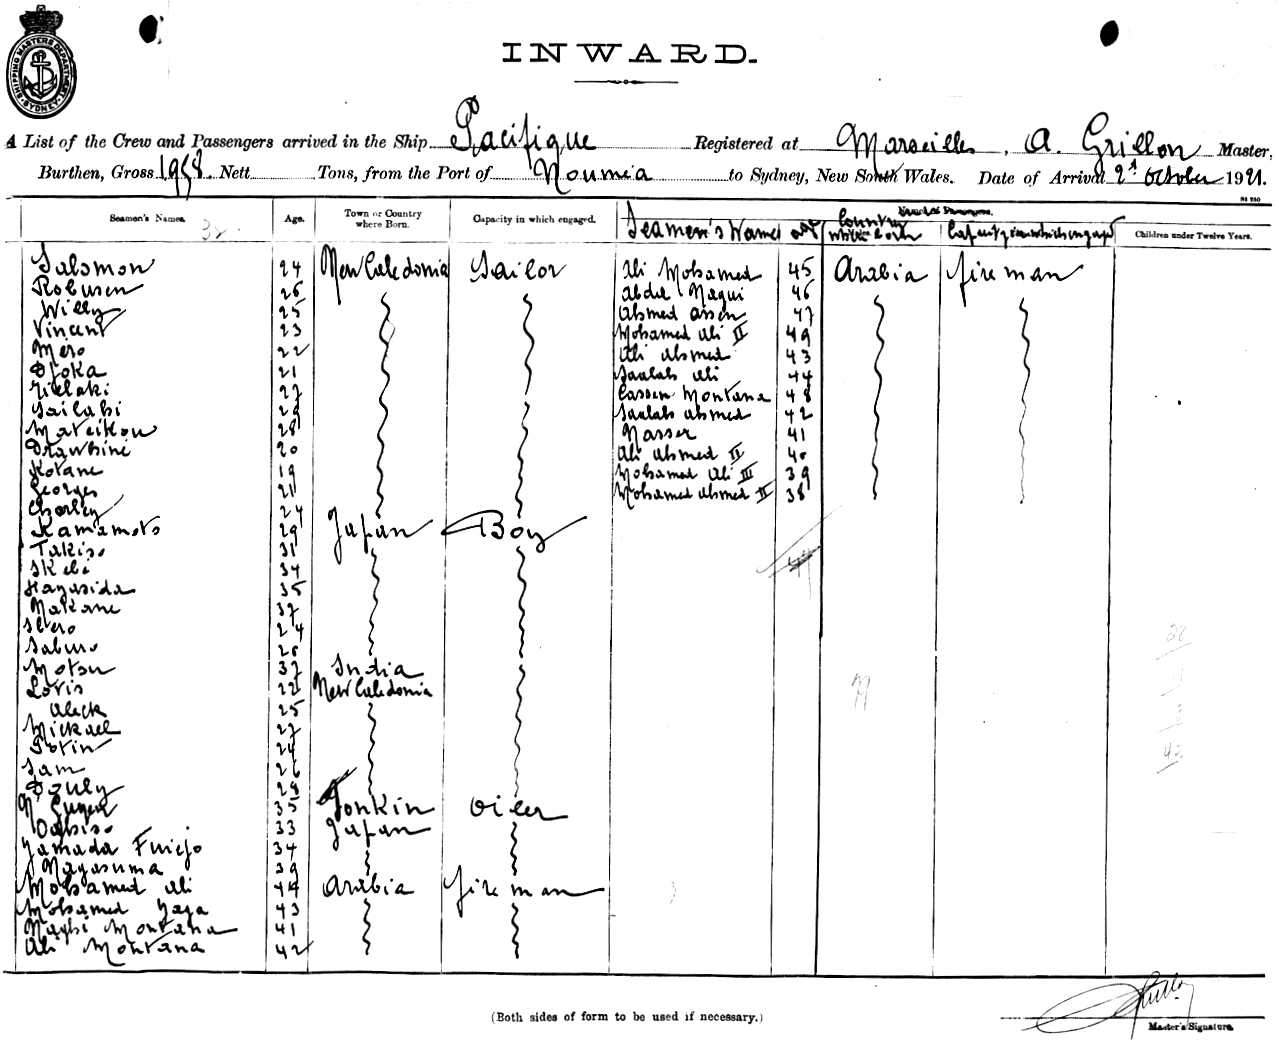 SHIPPING MASTERS DEPARTMENT SYDNEY
INWARD.
A List of the Crew and Passengers arrived in the Ship Pacifique Registered at Marseilles, A. Grillon Master,
Burthen, Gross 1958 Nett Tons, from the Port of Nouméa to Sydney, New South Wales. Date of Arrival 2d October 1921.
Seamen's Names. Age. Town or Country where Born. Capacity in which engaged. Seamen's Names age Country where born Capacity in which engaged Children under Twelve Years.
Salomon 24 New Caledonia Sailor Ali Mohamed 45 Arabia fireman
Robusen 26 Abdul Nagui 46
Willy 25 Ahmed Assen 47
Vincent 23 Mohamed Ali II 49
Mero 22 Ali Ahmed 43
Djoka 21 Saalah Ali 44
27 Cassen Montana 48
Sailabi 29 Saalah Ahmed 42
Mateikou 28 Nasser 41
Drawhine 20 Ali Ahmed II 40
Kotane 19 Mohamed Ali III 39
Georges 21 Mohamed Ahmed II 38
Charley 24
Kamamoto 29 Japan Boy
Takiso 31
Skebi 34
Hayasida 35
Nakane 37
24
Saburo 28
Motsu 37 India
Loris 22 New Caledonia
Aleck 25
Mickael 27
Potin 24
Sam 26
Douly 28
35 Tonkin Oiler
Oabiso 33 Japan
Yamada Funijo 34
Nagasuma 39
Mohamed Ali 44 Arabia fireman
Mohamed Yaya 43
Nagbi Montana 41
Ali Montana 42
(Both sides of form to be used if necessary.)
Master's Signature.